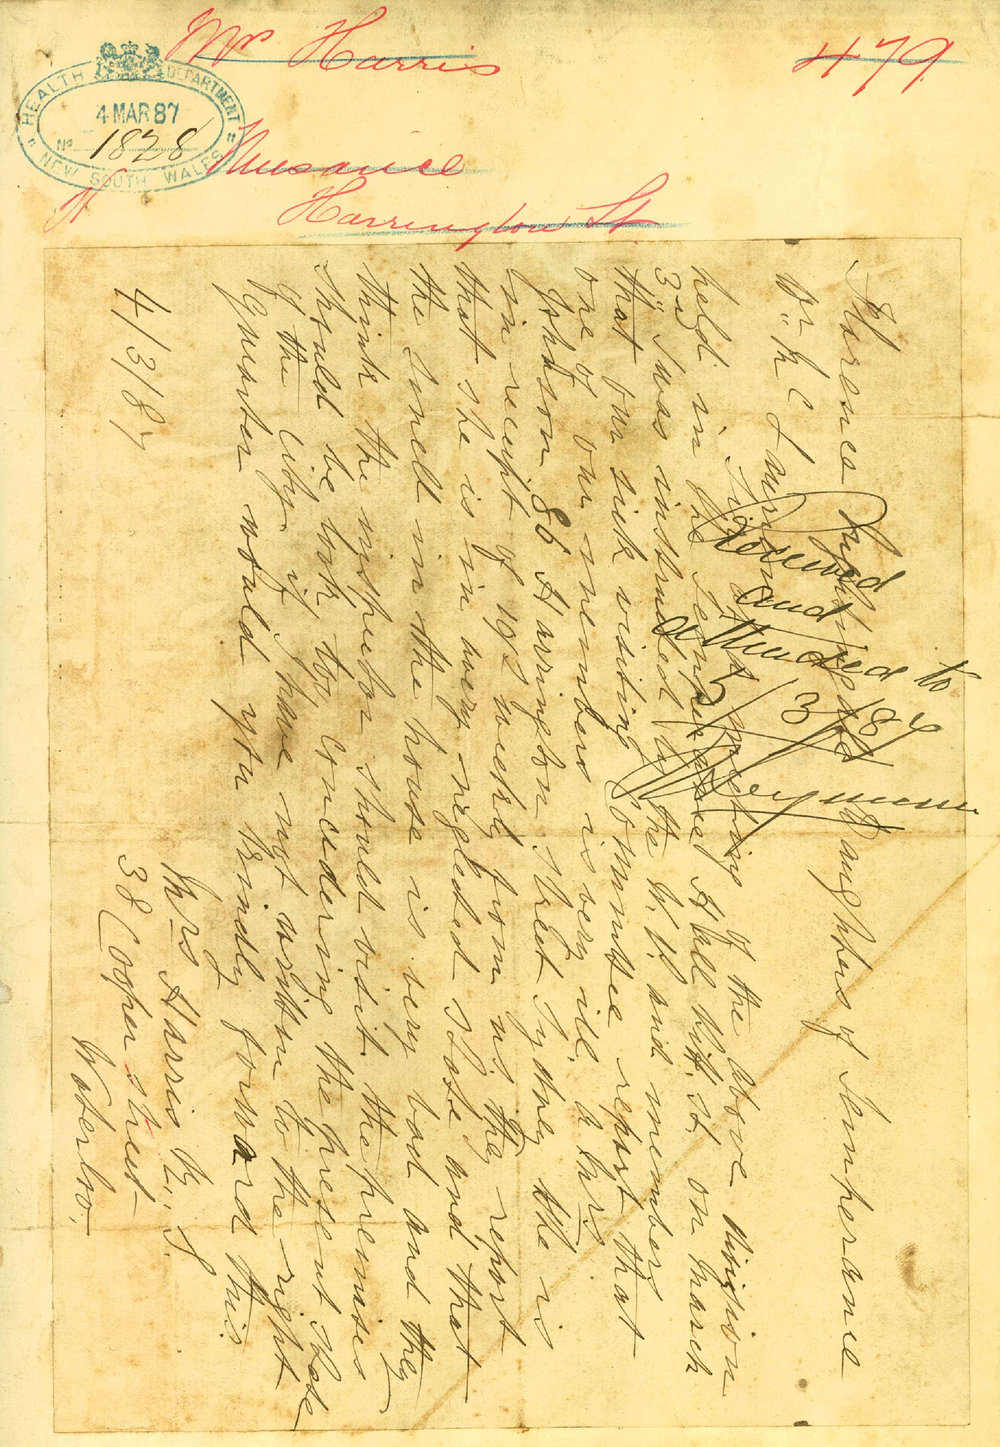 Mrs Harris
479
HEALTH DEPARTMENT
4 MAR 87
No 1828
NEW SOUTH WALES
Nuisance
Harrington St
Florence Daughters of Temperance
Dr
meeting of the above Division
held in the Temperance Hall Pitt St on March
3rd I was instructed by the W. P. and members
that our sick visiting Committee report that
one of our members is very ill. a Mrs
Johnson 86 Harrington Street Sydney she is
in receipt of 10s weekly from us. they report
that she is in avery neglected state and that
the smell in the house is very bad and they
think the inspector should visit the premises
should be took to, concidering the present state
of the City if I have not written to the right
Quarter would you kindly forward this
Mrs Harris R. S.
4/3/87
38 Cooper street
Waterloo.
Received
and
attended to
5/3/87
Seymour